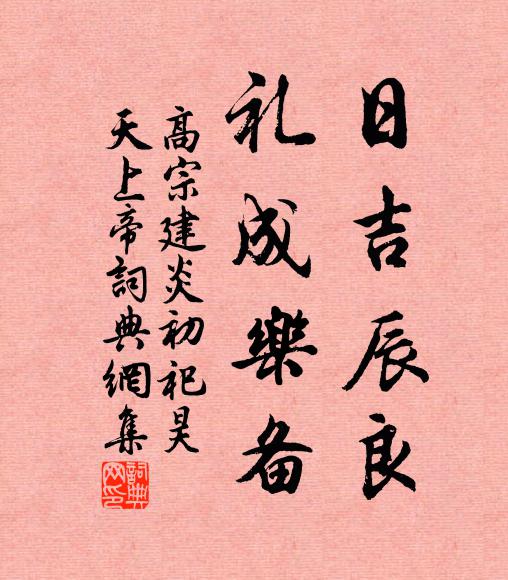 日吉辰良
礼成樂备
高宗建炎初祀昊
天上帝詞典網集
詞典网印